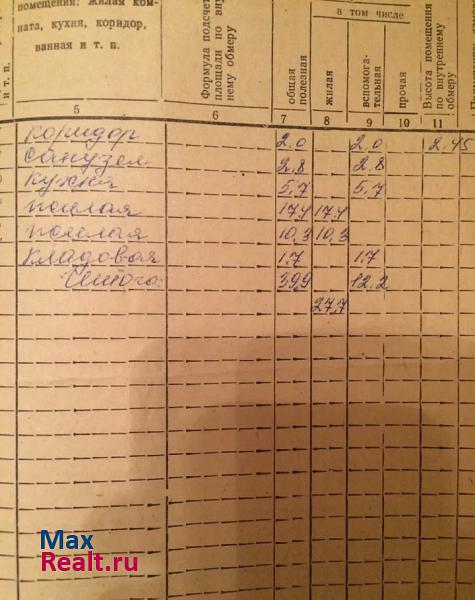 помещения: жилая ком-
ната, кухня, коридор,
ванная и т. п.
и т. п.
Формула подсчет
площади по вну
нему обмеру
общая
полезная
в том числе
жилая
вспомога-
тельная
прочая
Высота помещения
по внутреннему
обмеру
5 6 7 8 9 10 11
коридор 2.0 2.0 2.45
санузел 2.8 2.8
кухня 5.7 5.7
жилая 17.4 17.4
жилая 10.3 10.3
кладовая 1.7 1.7
Итого: 39,9 12.2
27,7
Max
Realt.ru